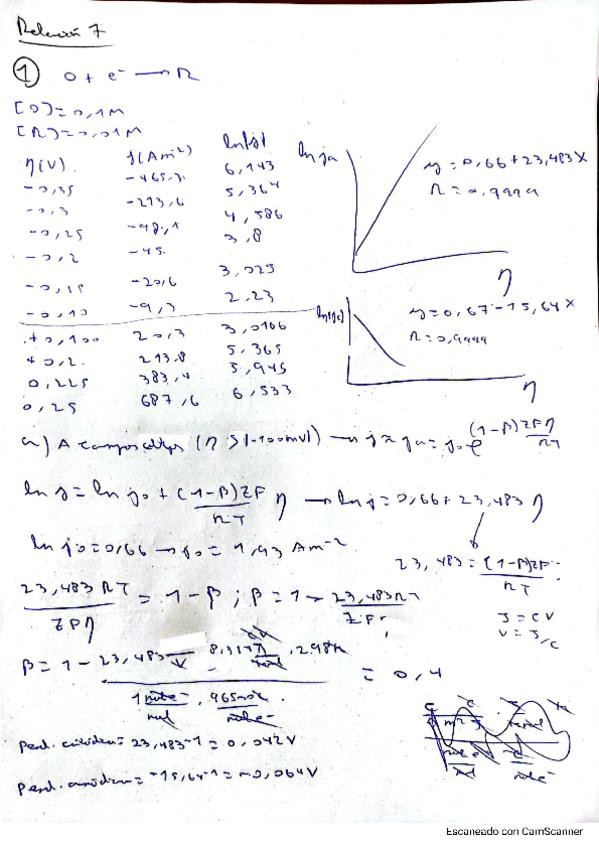 Relación 7
① O + e⁻ → R
[O] = 0,1 M
[R] = 0,01 M
η(V) j(Am⁻²) ln|j|
-0,35 -465,3 6,143
-0,3 -213,6 5,364
-0,25 -98,1 4,586
-0,2 -45 3,8
-0,15 -20,6 3,025
-0,10 -9,3 2,23
+0,100 20,3 3,0106
+0,2 213,8 5,365
0,225 383,4 5,945
0,25 687,6 6,533
ln ja
y = 0,66 + 23,483x
R = 0,9999
η
ln|jc|
y = 0,67 - 15,64x
R = 0,9999
η
a) A campos altos (η > |-100mV|) → j ≈ ja = j₀ e^((1-β)ZFη/RT)
ln j = ln j₀ + (1-β)ZF/RT η → ln j = 0,66 + 23,483 η
ln j₀ = 0,66 → j₀ = 1,93 Am⁻²
23,483 = (1-β)ZF/RT
23,483RT/ZFη = 1 - β ; β = 1 - 23,483RT/ZF
J = CV
V = J/C
β = 1 - 23,483 · 298K / 1 mol e⁻/mol · 96500 = 0,4
Pend. catódica = 23,483⁻¹ = 0,042V
Pend. anódica = -15,64⁻¹ = -0,064V
Escaneado con CamScanner